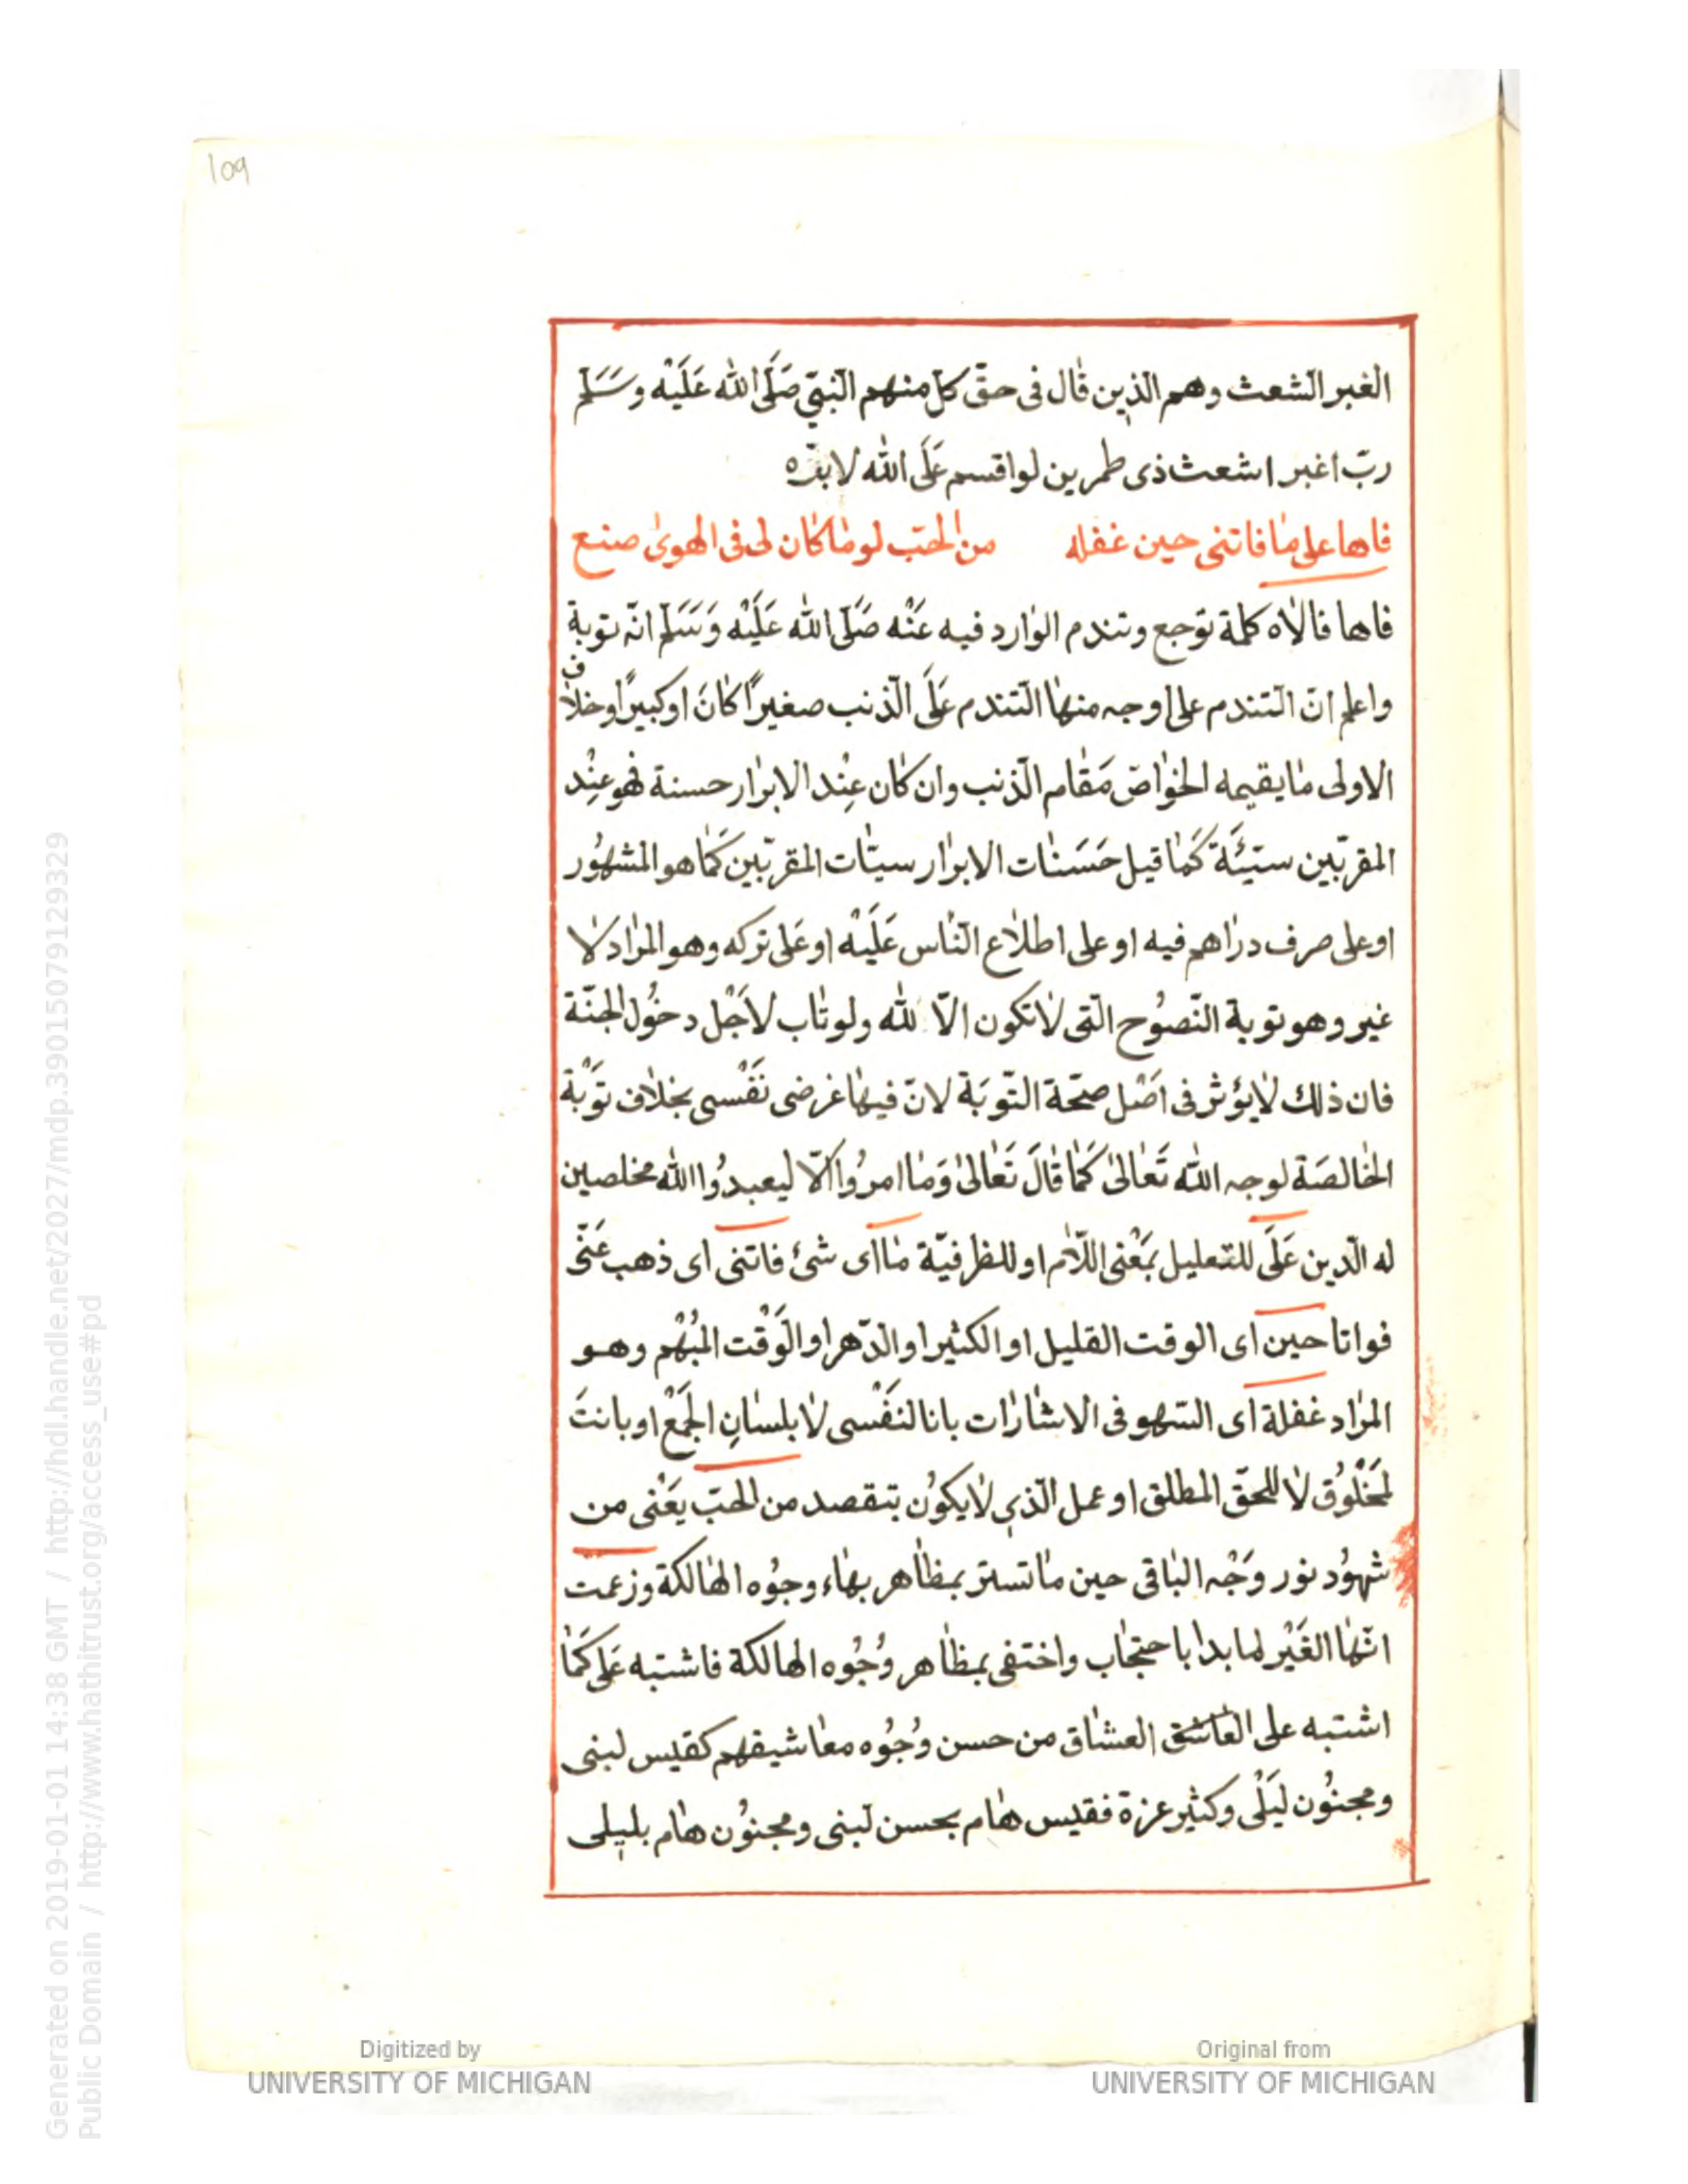 109
الغبر الشعث وهم الّذين قال فى حقّ كل منهم النّبىّ صَلَّى الله عَلَيْه وسَلَّم
ربّ اغبر اشعث ذى طمرين لو اقسم عَلَى الله لابرّه
فاها على ما فاتنى حين غفله من الحبّ لو ما كان لى فى الهوى صنع
فاها فالاه كلمة توجع وتندم الوارد فيه عَنْه صَلَّى الله عَلَيْه وَسَلَّم انّه توبة
واعلم انّ التّندم على اوجه منها التّندم عَلَى الّذنب صغيرًا كانَ او كبيرًا وخلاف
الاولى ما يقيمه الخواصّ مَقام الّذنب وان كان عِنْد الابرار حسنة فهو عِنْد
المقرّبين سيّئَة كَمَا قيل حَسَنات الابرار سيئات المقرّبين كَمَا هو المشهُور
او على صرف دراهم فيه او على اطلاع النّاس عَلَيْه او عَلى تركه وهو المراد لا
غير وهو توبة النّصُوح الّتى لا تكون الّا لله ولو تاب لاَجْل دخُول الجنّة
فان ذلك لا يؤثر فى اَصْل صحّة التّوبَة لانّ فيها غرضى نَفْسى بخلاف تَوْبة
الخالصَة لوجه الله تَعالىٰ كَمَا قالَ تَعالىٰ وَما امرُوا الّا ليعبدُوا الله مخلصين
له الّدين عَلَى للتعليل بمَعْنى اللّام او للظرفيّة ما اى شئ فاتنى اى ذهب عَنّى
فواتا حين اى الوقت القليل او الكثير او الّدهر او الوَقْت المُبْهم وهو
المراد غفلة اى السّهو فى الاشارات بانا لنَفْسى لا بلسانِ الجَمْع او بانتَ
لمَخْلُوق لا للحقّ المطلق او عمل الّذى لا يكُون بتقصد من الحبّ يَعْنى من
شهُود نور وَجْه الباقى حين ما تستر بمظاهر بهاء وجُوه الهالكة وزعمت
انّها الغَيْر لما بدا باحتجاب واختفى بمظاهر وُجُوه الهالكة فاشتبه عَلى كَمَا
اشتبه على العاشق العشاق من حسن وُجُوه معاشيقهم كقيس لبنى
ومجنُون ليَلْى وكثير عزة فقيس هام بحسن لبنى ومجنُون هام بليلى
Generated on 2019-01-01 14:38 GMT / http://hdl.handle.net/2027/mdp.39015079129329
Public Domain / http://www.hathitrust.org/access_use#pd
Digitized by
UNIVERSITY OF MICHIGAN
Original from
UNIVERSITY OF MICHIGAN